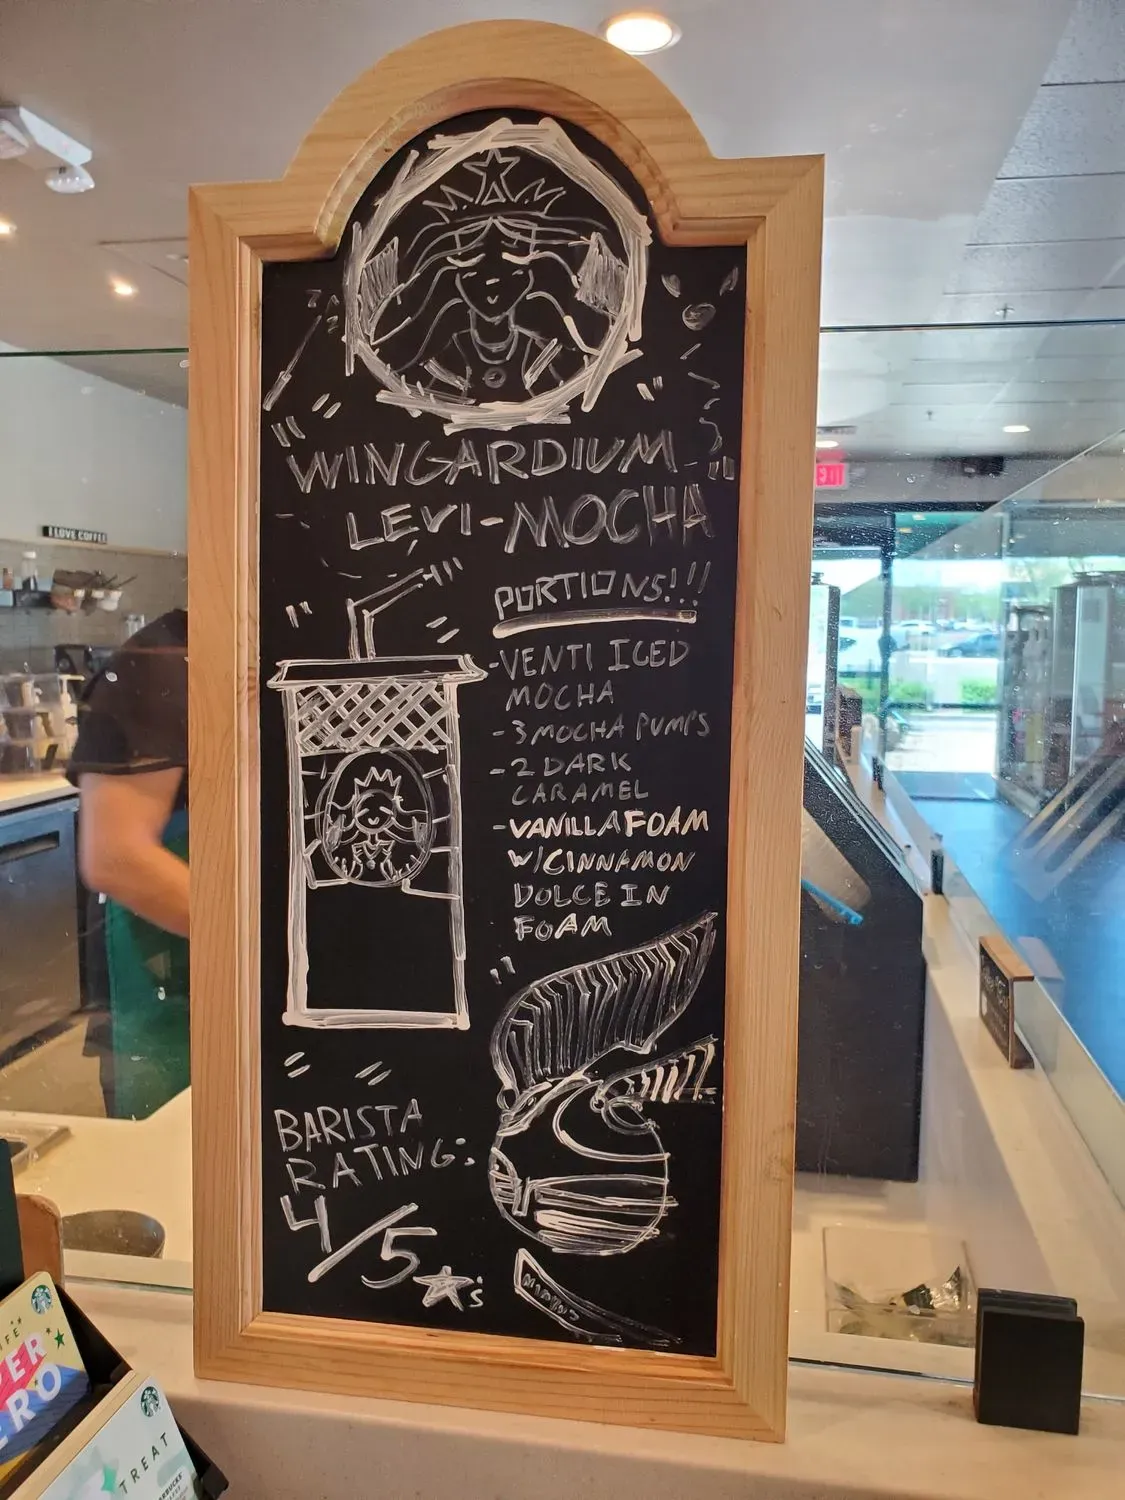 WINGARDIUM
LEVI-MOCHA
PORTIONS!!!
-VENTI ICED
MOCHA
-3 MOCHA PUMPS
-2 DARK
CARAMEL
-VANILLA FOAM
W/CINNAMON
DOLCE IN
FOAM
BARISTA
RATING:
4/5 ☆'s
I LOVE COFFEE
EXIT
TREAT